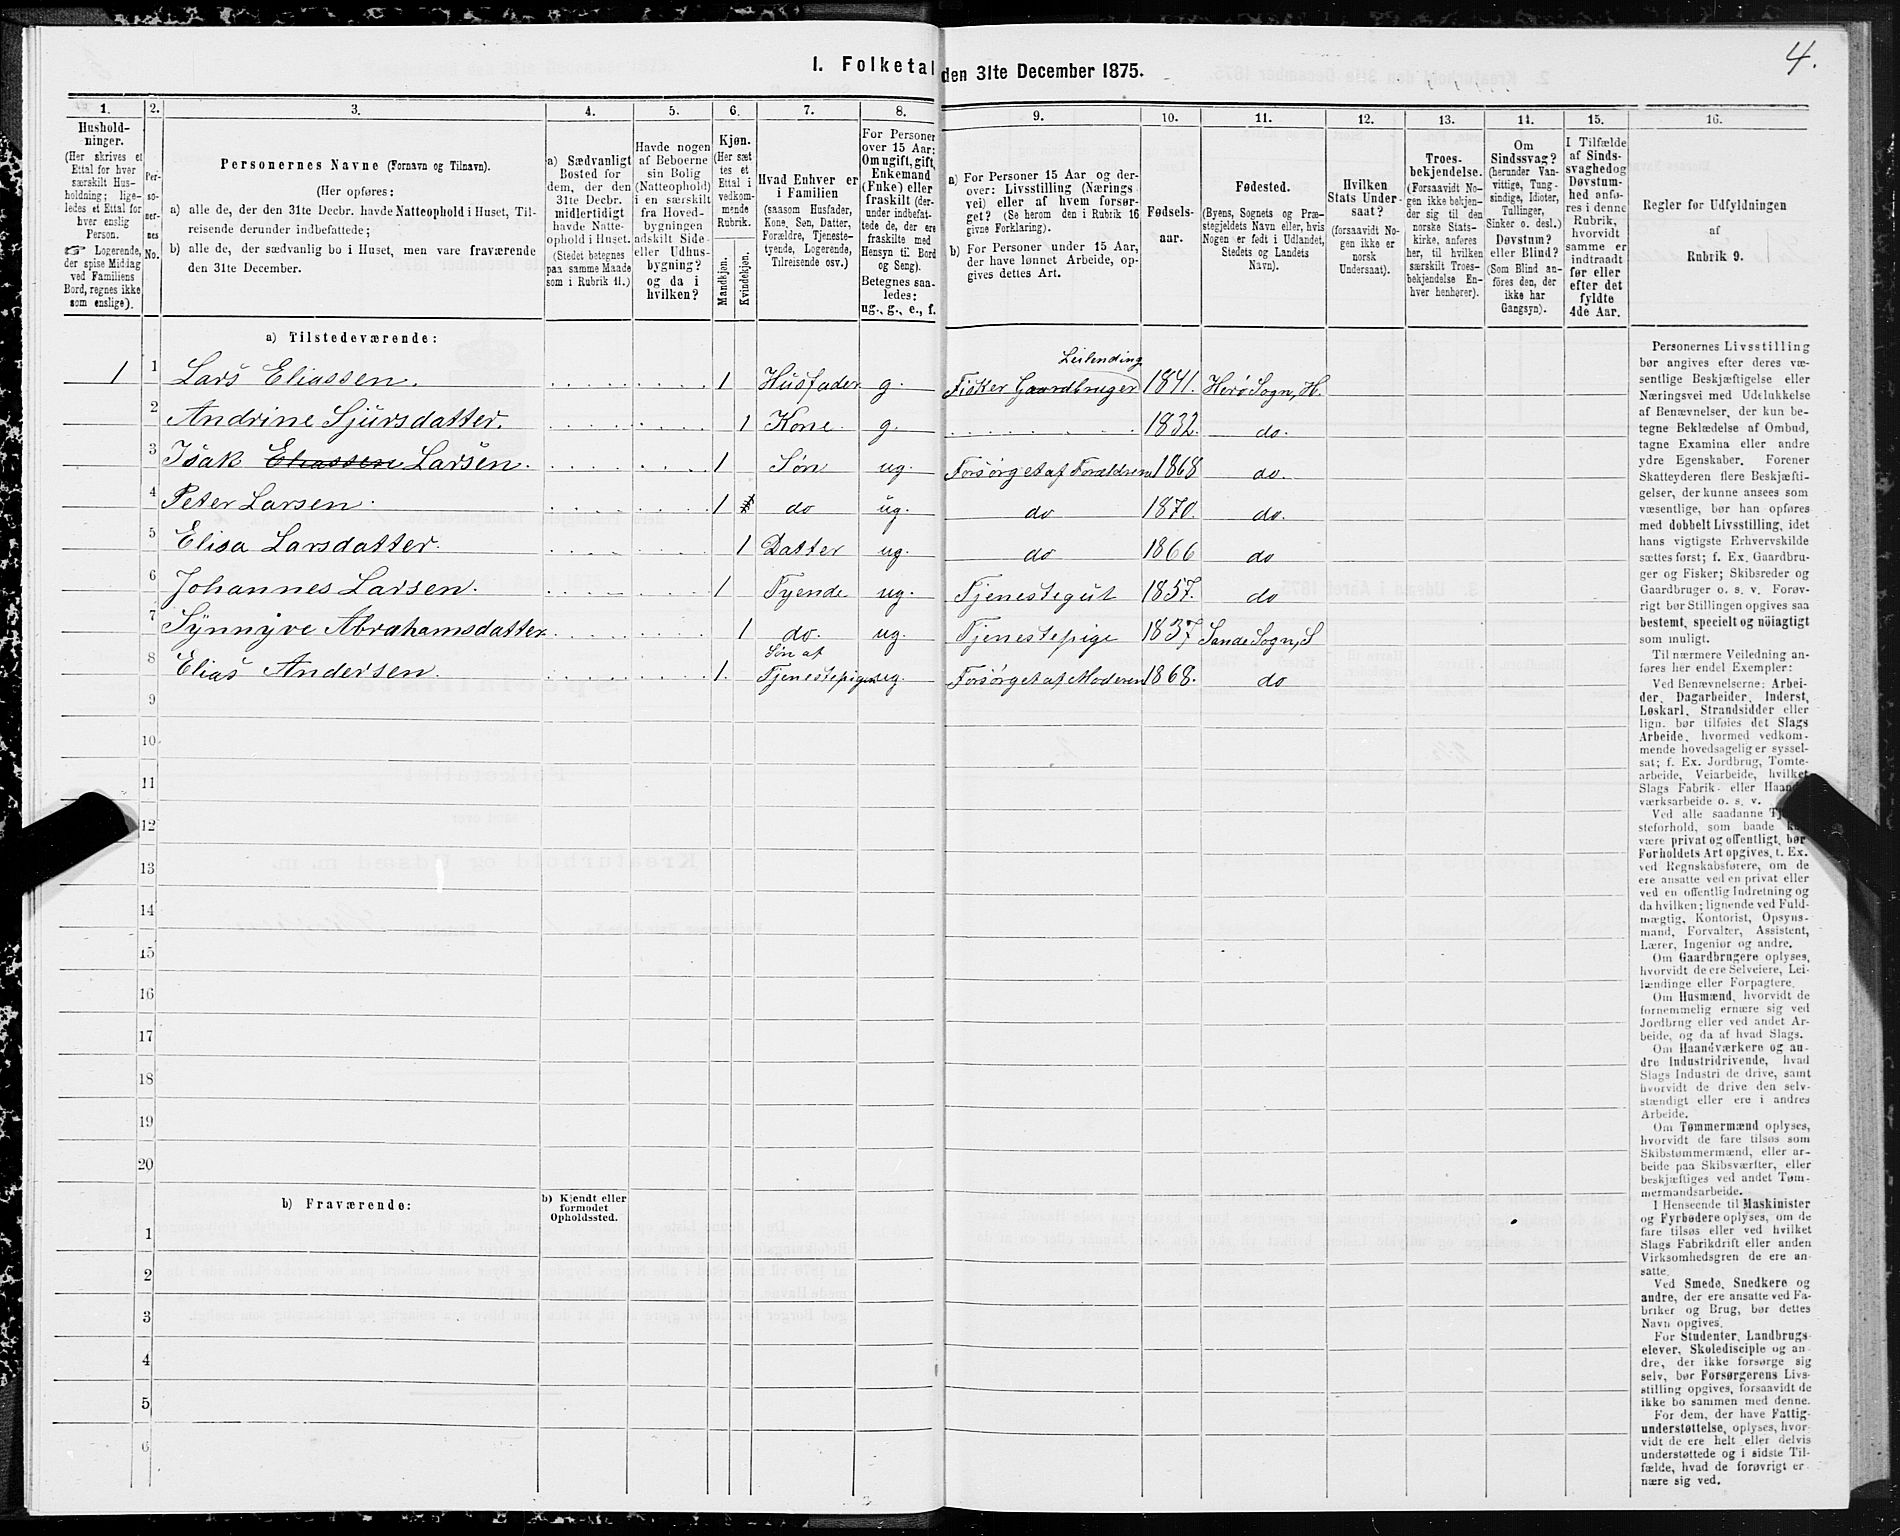 4.
I. Folketal den 31te December 1875.
1. 2. 3. 4. 5. 6. 7. 8. 9. 10. 11. 12. 13. 14. 15. 16.
Hushold-
ninger.
(Her skrives et
Ettal for hver
særskilt Hus-
holdning; lige-
ledes et Ettal for
hver enslig
Person.
☞ Logerende,
der spise Middag
ved Familiens
Bord, regnes ikke
som enslige).
Per-
so-
ner-
nes
No.
Personernes Navne (Fornavn og Tilnavn).
(Her opføres:
a) alle de, der den 31te Decbr. havde Natteophold i Huset, Til-
reisende derunder indbefattede;
b) alle de, der sædvanlig bo i Huset, men vare fraværende
den 31te December.
a) Sædvanligt
Bosted for
dem, der den
31te Decbr.
midlertidigt
havde Natte-
ophold i Huset.
(Stedet betegnes
paa samme Maade
som i Rubrik 11.)
Havde nogen
af Beboerne
sin Bolig
(Natteophold)
i en særskilt
fra Hoved-
bygningen
adskilt Side-
eller Udhus-
bygning?
og da i
hvilken?
Kjøn.
(Her sæt-
tes et
Ettal i
vedkom-
mende
Rubrik.
Mandkjøn.
Kvindekjøn.
Hvad Enhver er
i Familien
(saasom Husfader,
Kone, Søn, Datter,
Forældre, Tjeneste-
tyende, Logerende,
Tilreisende osv.)
For Personer
over 15 Aar:
Om ugift, gift,
Enkemand
(Enke) eller
fraskilt (der-
under indbefat-
tede de, der ere
fraskilte med
Hensyn til Bord
og Seng).
Betegnes saa-
ledes:
ug., g., e., f.
a) For Personer 15 Aar og der-
over: Livsstilling (Nærings-
vei) eller af hvem forsør-
get? (Se herom den i Rubrik 16
givne Forklaring).
b) For Personer under 15 Aar,
der have lønnet Arbeide, op-
gives dettes Art.
Fødsels-
aar.
Fødested.
(Byens, Sognets og Præ-
stegjeldets Navn eller, hvis
Nogen er født i Udlandet,
Stedets og Landets
Navn).
Hvilken
Stats Under-
saat?
(forsaavidt No-
gen ikke er
norsk
Undersaat).
Troes-
bekjendelse.
(Forsaavidt No-
gen ikke bekjen-
der sig til den
norske Stats-
kirke, anføres
her, til hvilken
særskilt Troes-
bekjendelse En-
hver henhører).
Om
Sindssvag?
(herunder Van-
vittige, Tung-
sindige, Idioter,
Tullinger,
Sinker o. desl.)
Døvstum?
eller Blind?
(Som Blind an-
føres den, der
ikke har
Gangsyn).
I Tilfælde
af Sinds-
svaghed og
Døvstum-
hed anfø-
res i denne
Rubrik,
hvorvidt
samme er
indtraadt
før eller
efter det
fyldte
4de Aar.
Regler for Udfyldningen
af
Rubrik 9.
a) Tilstedeværende:
1 1 Lars Eliassen. 1 Husfader g. Fisker Gaardbruger Leilending 1841. Herø Sogn, H.
2 Andrine Sjursdatter. 1 Kone g. 1832. do.
3 Isak Eliassen Larsen. 1 Søn ug. Forsørget af Forældrene 1868 do.
4 Peter Larsen. 1 do ug. do 1870. do.
5 Elisa Larsdatter. 1 Datter ug. do 1866 do
6 Johannes Larsen. 1 Tyende ug. Tjenestegut 1857. do
7 Synnyve Abrahamsdatter 1 do. ug. Tjenestepige 1837 Sande Sogn, S
8 Elias Andersen. 1. Søn af Tjenestepigen ug. Forsørget af Moderen 1868. do
9
10
11
12
13
14
15
16
17
18
19
20
b) Fraværende:
b) Kjendt eller
formodet
Opholdssted.
1
2
3
4
5
6
Personernes Livsstilling
bør angives efter deres væ-
sentlige Beskjæftigelse eller
Næringsvei med Udelukkelse
af Benævnelser, der kun be-
tegne Beklædelse af Ombud,
tagne Examina eller andre
ydre Egenskaber. Forener
Skatteyderen flere Beskjæfti-
gelser, der kunne ansees som
væsentlige, bør han opføres
med dobbelt Livsstilling, idet
hans vigtigste Erhvervskilde
sættes først; f. Ex. Gaardbru-
ger og Fisker; Skibsreder og
Gaardbruger o. s. v. Forøv-
rigt bør Stillingen opgives saa
bestemt, specielt og nöiagtigt
som muligt.
Til nærmere Veiledning an-
føres her endel Exempler:
Ved Benævnelserne: Arbei-
der, Dagarbeider, Inderst,
Løskarl, Strandsidder eller
lign. bør tilføies det Slags
Arbeide, hvormed vedkom-
mende hovedsagelig er syssel-
sat; f. Ex. Jordbrug, Tomte-
arbeide, Veiarbeide, hvilket
Slags Fabrik- eller Haand-
værksarbeide o. s. v.
Ved alle saadanne
steforhold, som baade
være privat og offentligt, bør
Forholdets Art opgives, t. Ex.
ved Regnskabsførere, om de
ere ansatte ved en privat eller
ved en offentlig Indretning og
da hvilken; lignende ved Fuld-
mægtig, Kontorist, Opsyns-
mand, Forvalter, Assistent,
Lærer, Ingeniør og andre.
Om Gaardbrugere oplyses,
hvorvidt de ere Selveiere, Lei-
lændinge eller Forpagtere.
Om Husmænd, hvorvidt de
fornemmelig ernære sig ved
Jordbrug eller ved andet Ar-
beide, og da af hvad Slags.
Om Haandværkere og an-
dre Industridrivende, hvad
Slags Industri de drive, samt
hvorvidt de drive den selv-
stændigt eller ere i andres
Arbeide.
Om Tømmermænd oplyses,
hvorvidt de fare tilsøs som
Skibstømmermænd, eller ar-
beide paa Skibsværfter, eller
beskjæftiges ved andet Tøm-
mermandsarbeide.
I Henseende til Maskinister
og Fyrbødere oplyses, om de
fare tilsøs eller ved hvilket
Slags Fabrikdrift eller anden
Virksomhedsgren de ere an-
satte.
Ved Smede, Snedkere og
andre, der ere ansatte ved Fa-
briker og Brug, bør dettes
Navn opgives.
For Studenter, Landbrugs-
elever, Skoledisciple og an-
dre, der ikke forsørge sig
selv, bør Forsørgerens Livs-
stilling opgives, forsaavidt de
ikke bo sammen med denne.
For dem, der have Fattig-
understøttelse, oplyses, hvor-
vidt de ere helt eller delvis
understøttede og i sidste Til-
fælde, hvad de forøvrigt er-
nære sig ved.